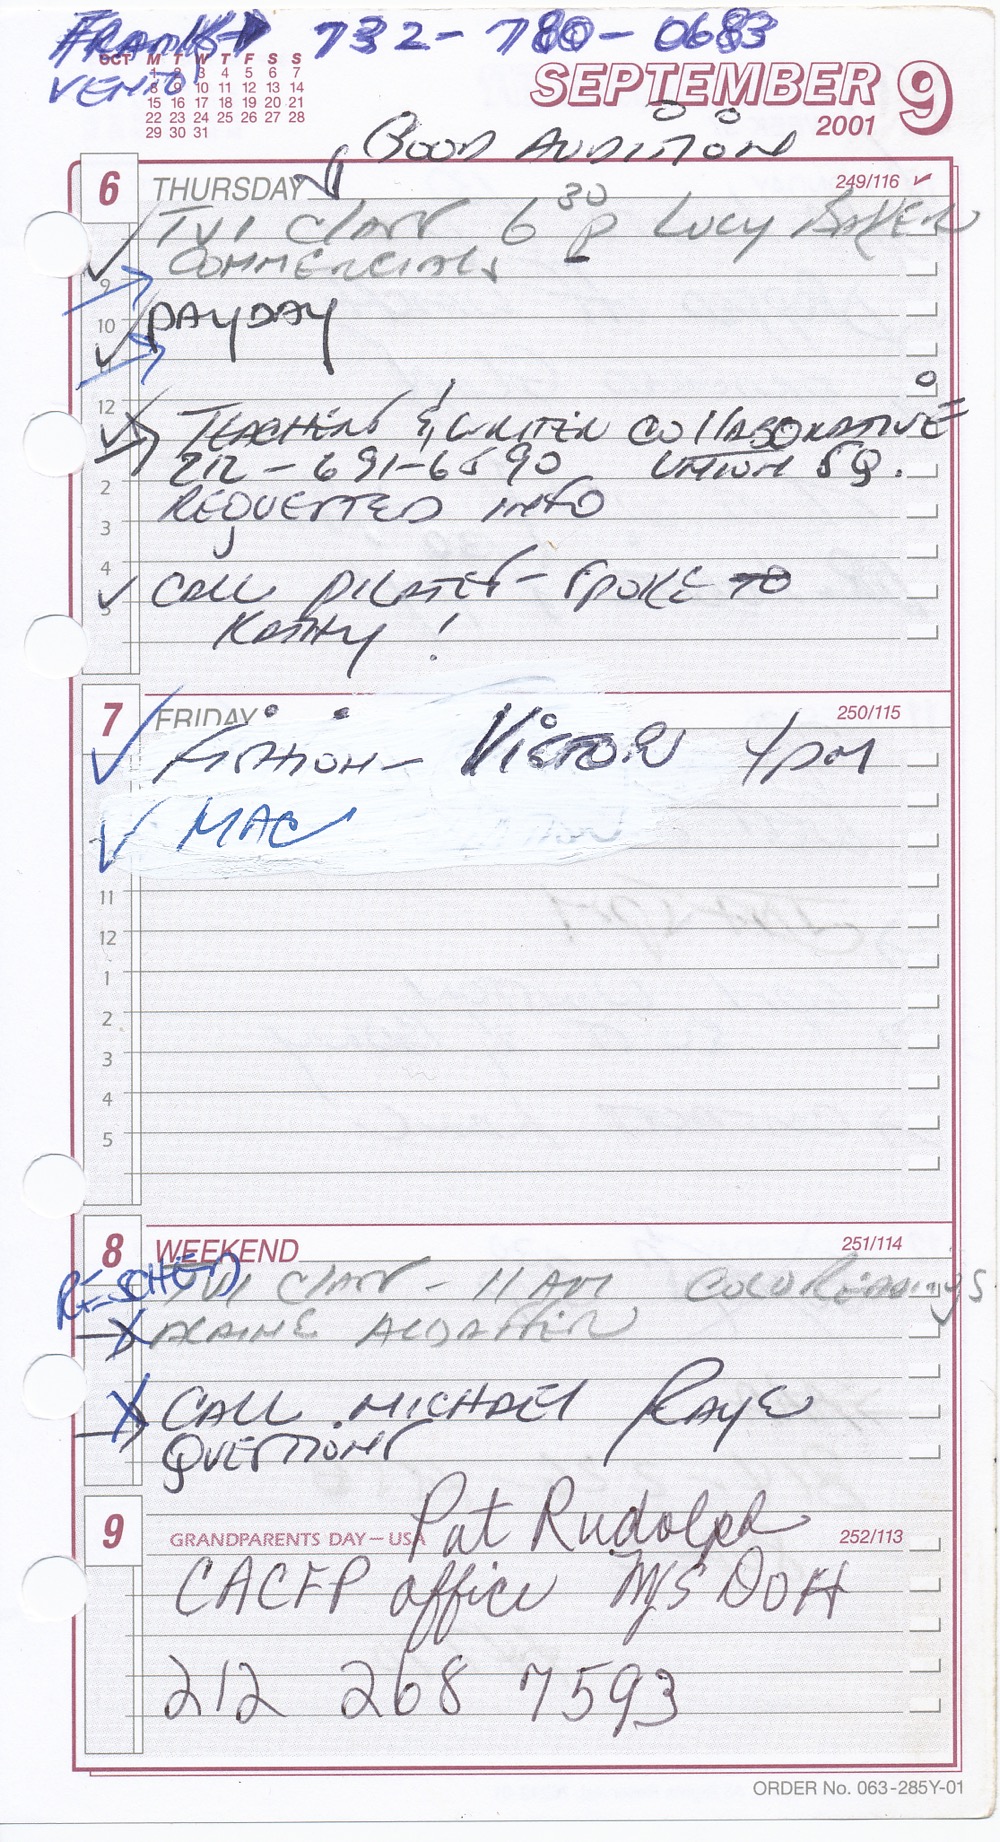 FRANK 732-780-0683
VENTO
OCT M T W T F S S
1 2 3 4 5 6 7
8 9 10 11 12 13 14
15 16 17 18 19 20 21
22 23 24 25 26 27 28
29 30 31
SEPTEMBER 9
2001
GOOD AUDITION
6 THURSDAY 249/116
TVI CLASS 6 30 P LUCY
COMMERCIALS
9
10 PAYDAY
11
12
TEACHERS & WRITER COLLABORATIVE
212-691-6590 UNION SQ.
2 REQUESTED INFO
3
4
5 CALL PILATES - SPOKE TO
KATHY!
7 FRIDAY 250/115
VICTOR 4PM
MAC
11
12
1
2
3
4
5
8 WEEKEND 251/114
RESCHED TVI CLASS - 11 AM COLD READINGS
CALL MICHAEL RAYE
QUESTIONS
Pat Rudolph
9 GRANDPARENTS DAY—USA 252/113
CACFP office NYS DOH
212 268 7593
ORDER No. 063-285Y-01